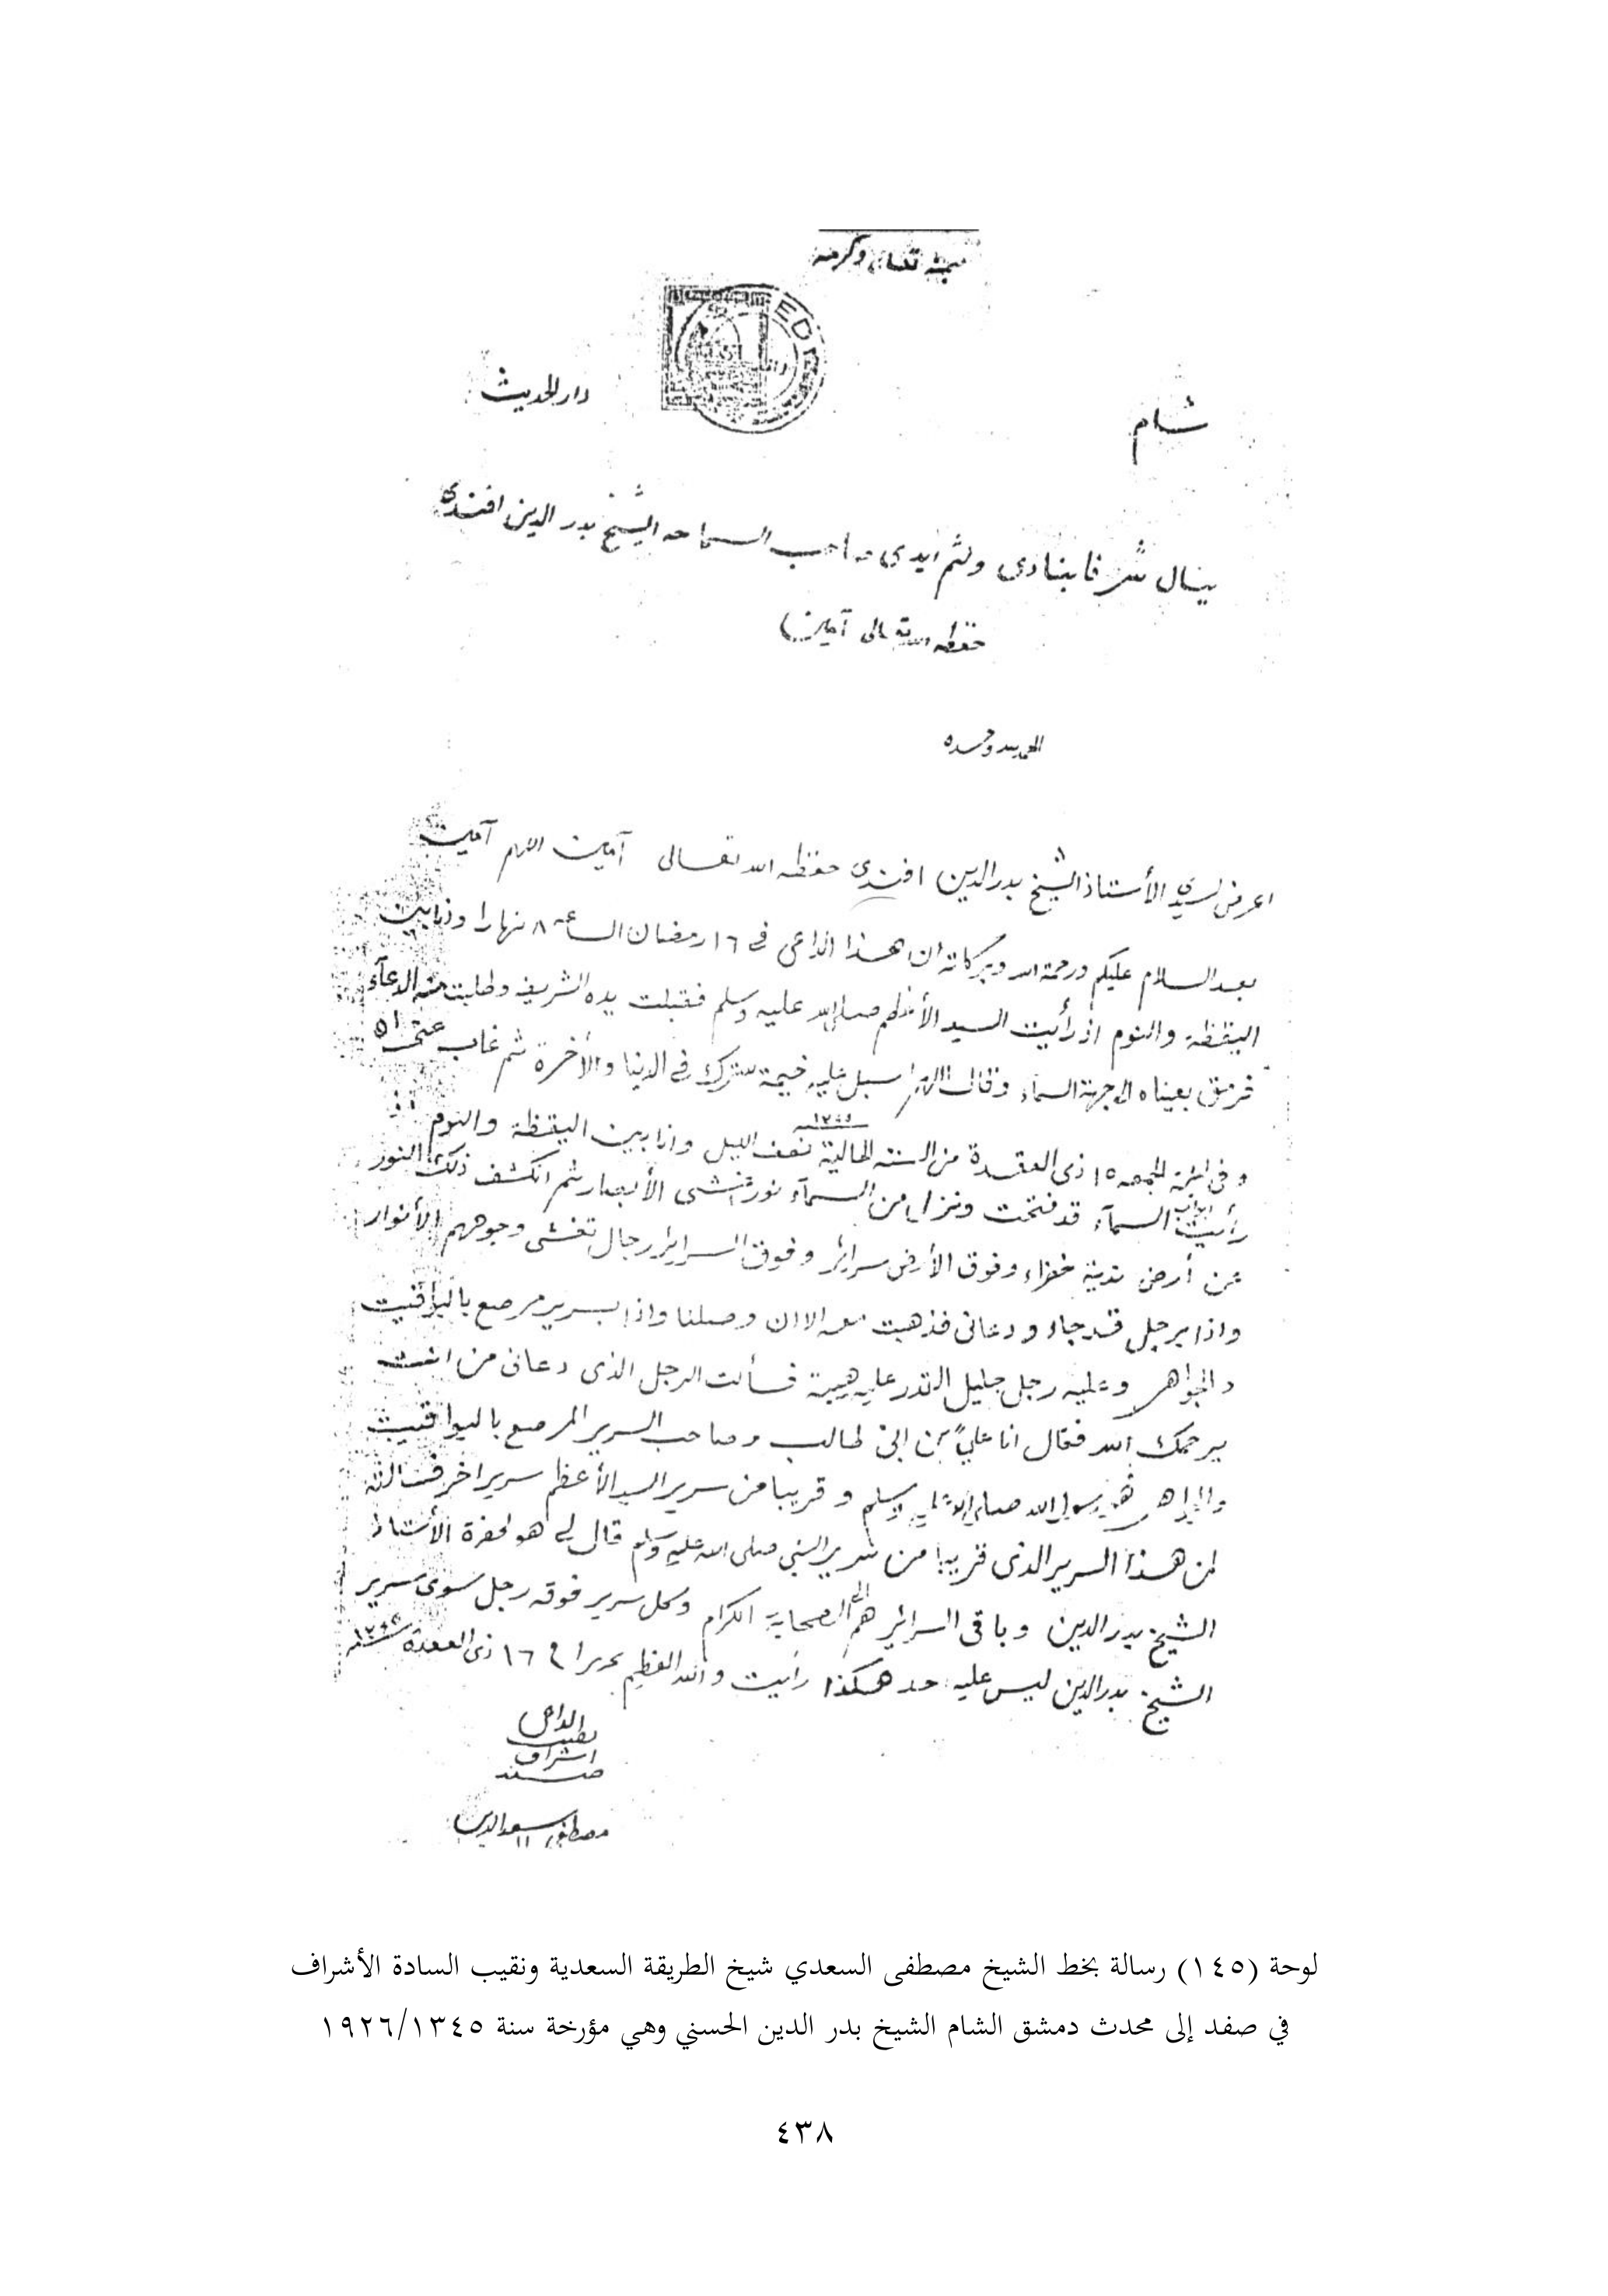 بمنه تعالى وكرمه
ED
شام
دار الحديث
ينال شرفا بنادى ولثم ايدى صاحب السماحه الشيخ بدر الدين افندى
حفظه الله تعالى آمين
الحمد لله وحده
اعرض لسيدى الأستاذ الشيخ بدر الدين افندى حفظه الله تعالى آمين اللهم آمين
بعد السلام عليكم ورحمة الله وبركاته ان هذا الداعى فى ١٦ رمضان الساعه ٨ نهارا وانا بين
اليقظة والنوم اذ رأيت السيد الأعظم صلى الله عليه وسلم فقبلت يده الشريفه وطلبت منه الدعآء
فرمق بعيناه الى جهة السمآء وقال اللهم اسبل عليه خيمة سترك فى الدنيا والأخرة ثم غاب عنى اه
و فى ليلة الجمعه ١٥ ذى العقدة من السنة الحالية ١٣٤٥ نصف الليل وانا بين اليقظة والنوم
رأيت ابواب السمآء قد فتحت ونزل من السمآء نور تغشى الأبصار ثم انكشف ذلك النور
عن أرض ندية خضراء وفوق الأرض سرائر وفوق السرائر رجال تغشى وجوههم الأنوار
واذا برجل قد جاء ودعانى فذهبت معه الا ان وصلنا واذا بسرير مرصع باليواقيت
والجواهر وعليه رجل جليل القدر عليه هيبة فسألت الرجل الذى دعانى من انت
يرحمك الله فقال انا علىّ بن ابى طالب وصاحب السرير المرصع باليواقيت
والجواهر هو رسول الله صلى الله عليه وسلم و قريبا من سرير السيد الأعظم سريرا اخر فسألته
لمن هذا السرير الذى قريبا من سرير النبي صلى الله عليه وسلم قال لى هو لحضرة الأستاذ
الشيخ بدر الدين وباقى السرائر هم الى الصحابة الكرام وكل سرير فوقه رجل سوى سرير
الشيخ بدر الدين ليس عليه احد هكذا رأيت والله العظيم تحريرا فى ١٦ ذى العقدة سنة ١٣٤٥
الداعى
نقيب
اشراف
صفد
مصطفى سعد الدين
لوحة (١٤٥) رسالة بخط الشيخ مصطفى السعدي شيخ الطريقة السعدية ونقيب السادة الأشراف
في صفد إلى محدث دمشق الشام الشيخ بدر الدين الحسني وهي مؤرخة سنة ١٣٤٥/١٩٢٦
٤٣٨